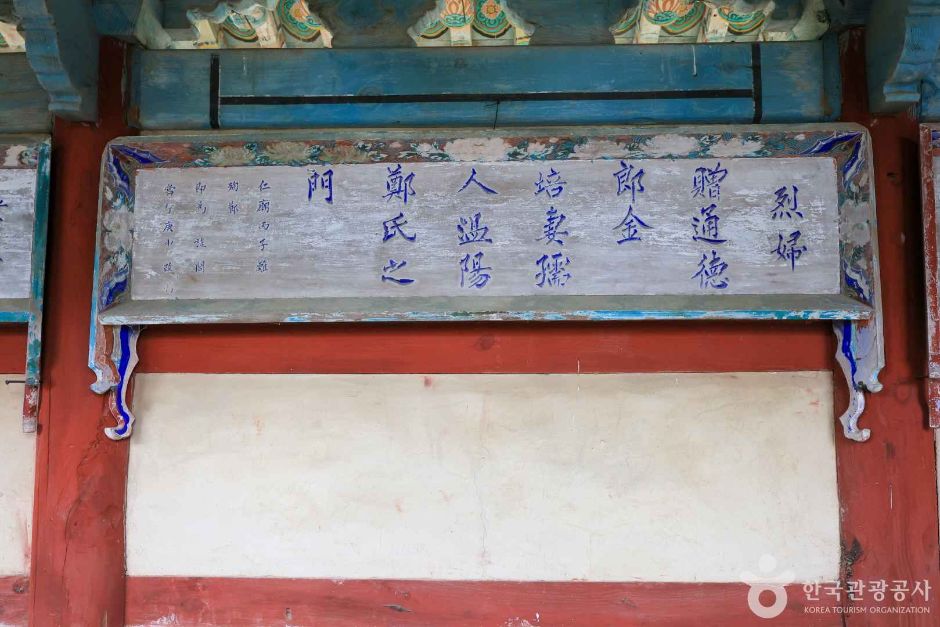 烈婦
贈通德
郎金
培妻孺
人温陽
鄭氏之
門
仁廟丙子難
殉節
即爲旌閭
한국관광공사
KOREA TOURISM ORGANIZATION